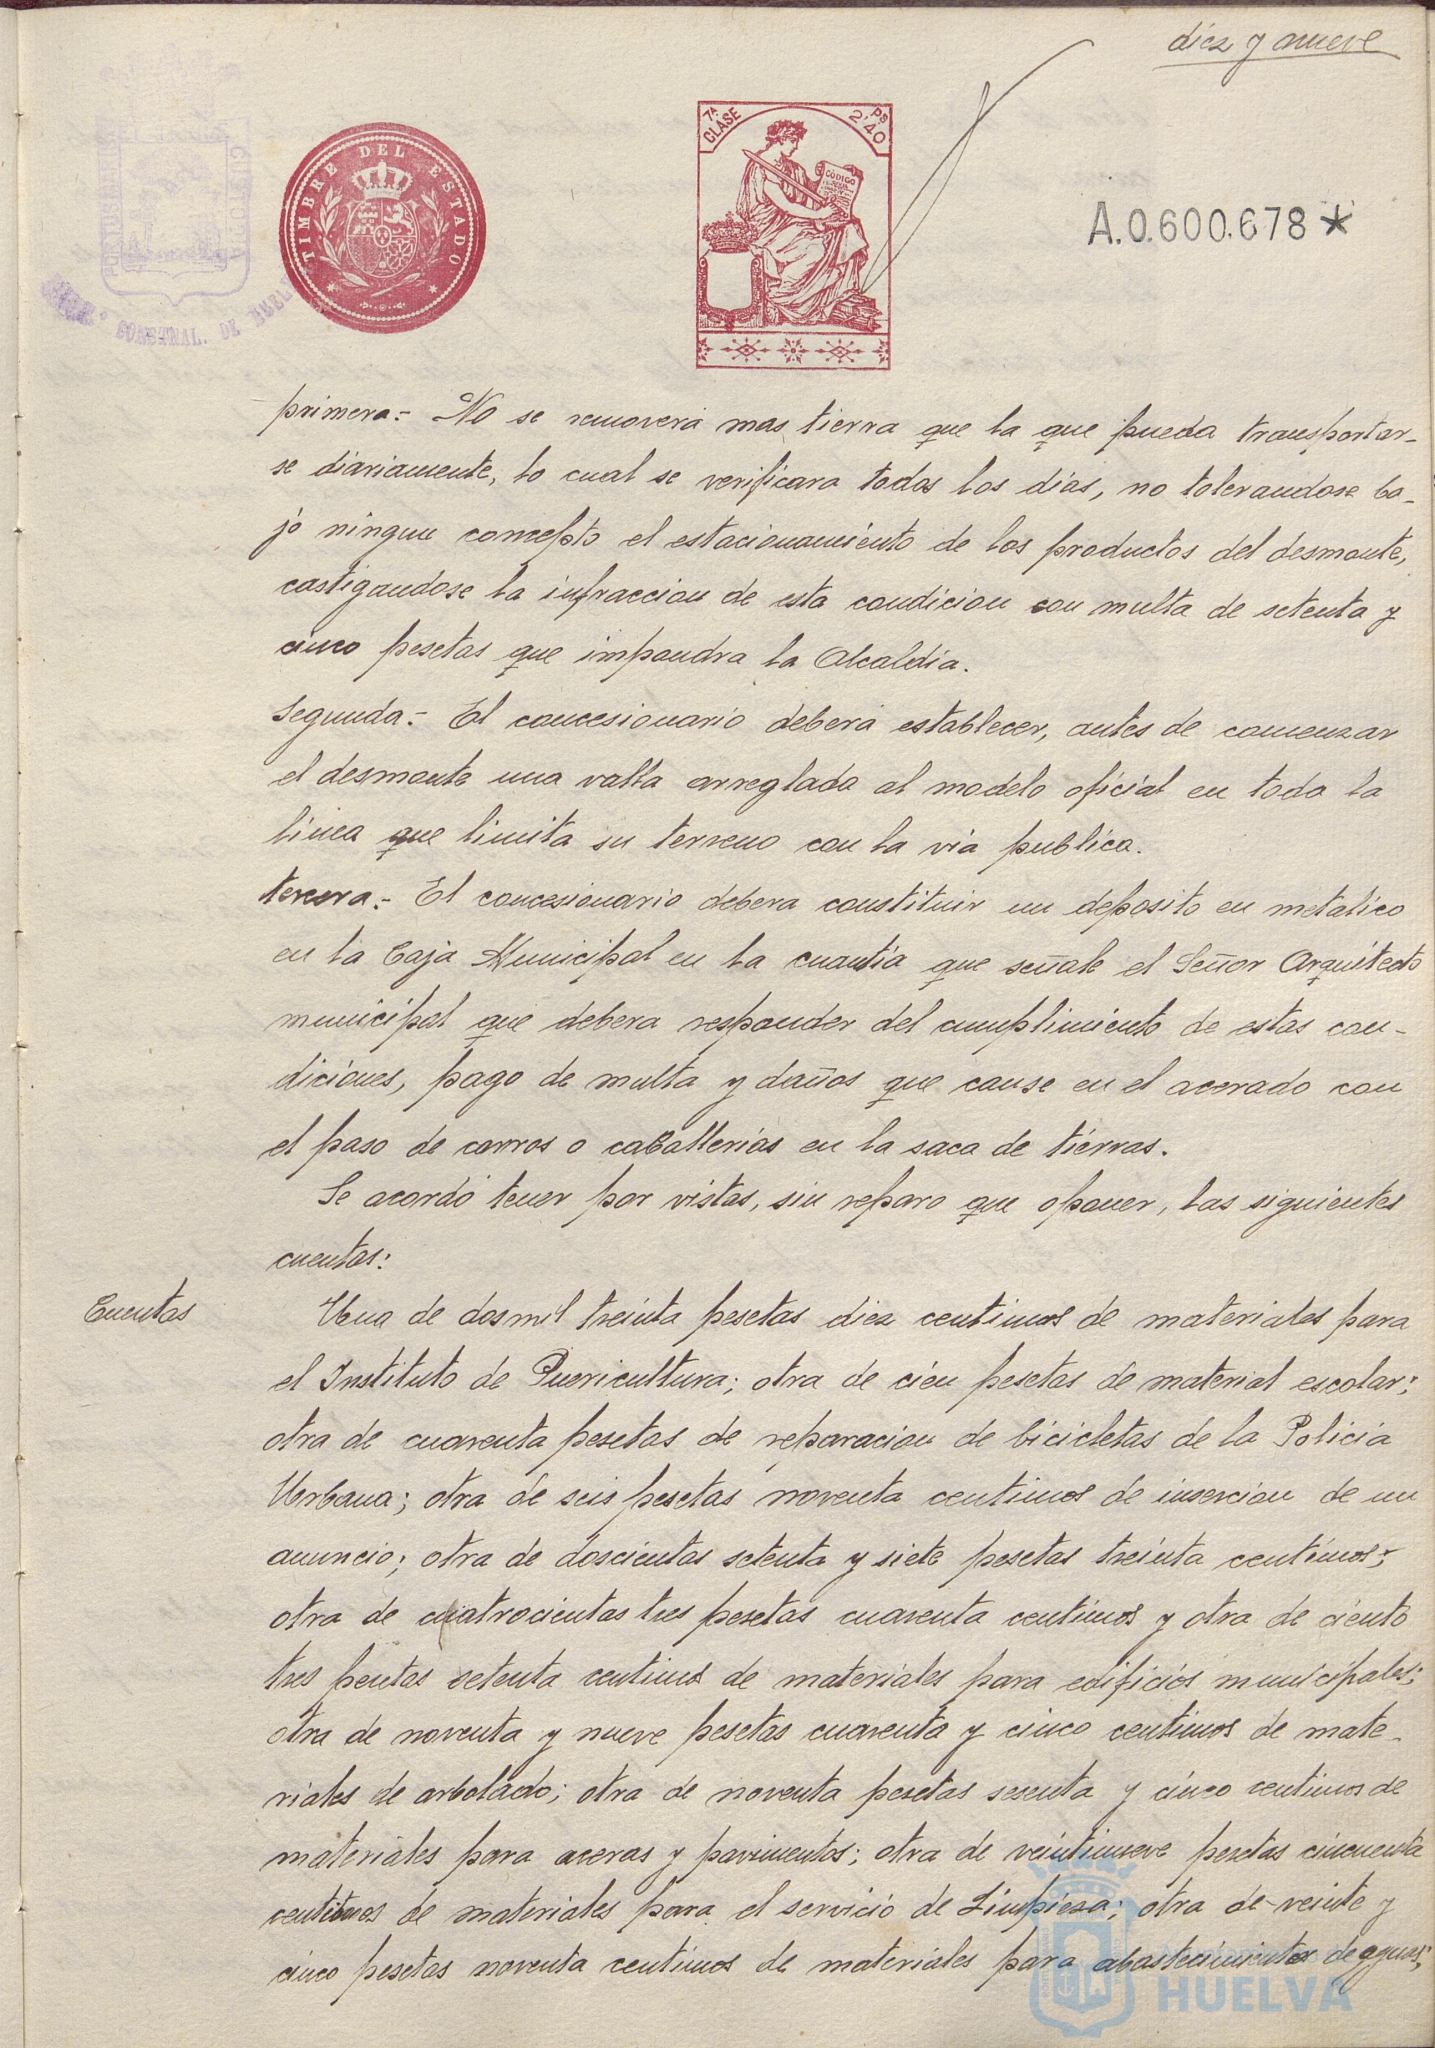 diez y nueve
TIMBRE DEL ESTADO
7ª CLASE
Ps 2'40
CÓDIGO
A.0.600.678*
CONSTNAL. DE
primera.- No se removerá mas tierra que la que pueda transportar-
se diariamente, lo cual se verificara todos los dias, no tolerandose ba-
jo ningun concepto el estacionamiento de los productos del desmonte,
castigandose la infraccion de esta condicion con multa de setenta y
cinco pesetas que impondra la Alcaldia.
Segunda.- El concesionario deberá establecer, antes de comenzar
el desmonte una valla arreglada al modelo oficial en toda la
linea que limita su terreno con la via publica.
tercera.- El concesionario debera constituir un deposito en metalico
en la Caja Municipal en la cuantia que señale el Señor Arquitecto
municipal que debera responder del cumplimiento de estas con-
diciones, pago de multa y daños que cause en el acerado con
el paso de carros o caballerias en la saca de tierras.
Se acordó tener por vistas, sin reparo que oponer, las siguientes
cuentas:
Cuentas
Una de dos mil treinta pesetas diez centimos de materiales para
el Instituto de Puericultura; otra de cien pesetas de material escolar;
otra de cuarenta pesetas de reparacion de bicicletas de la Policia
Urbana; otra de seis pesetas noventa centimos de insercion de un
anuncio; otra de doscientas setenta y siete pesetas treinta centimos;
otra de cuatrocientas tres pesetas cuarenta centimos y otra de ciento
tres pesetas setenta centimos de materiales para edificios municipales;
otra de noventa y nueve pesetas cuarenta y cinco centimos de mate-
riales de arbolado; otra de noventa pesetas sesenta y cinco centimos de
materiales para aceras y pavimentos; otra de veintinueve pesetas cincuenta
centimos de materiales para el servicio de Limpieza; otra de veinte y
cinco pesetas noventa centimos de materiales para abastecimiento de aguas;
HUELVA